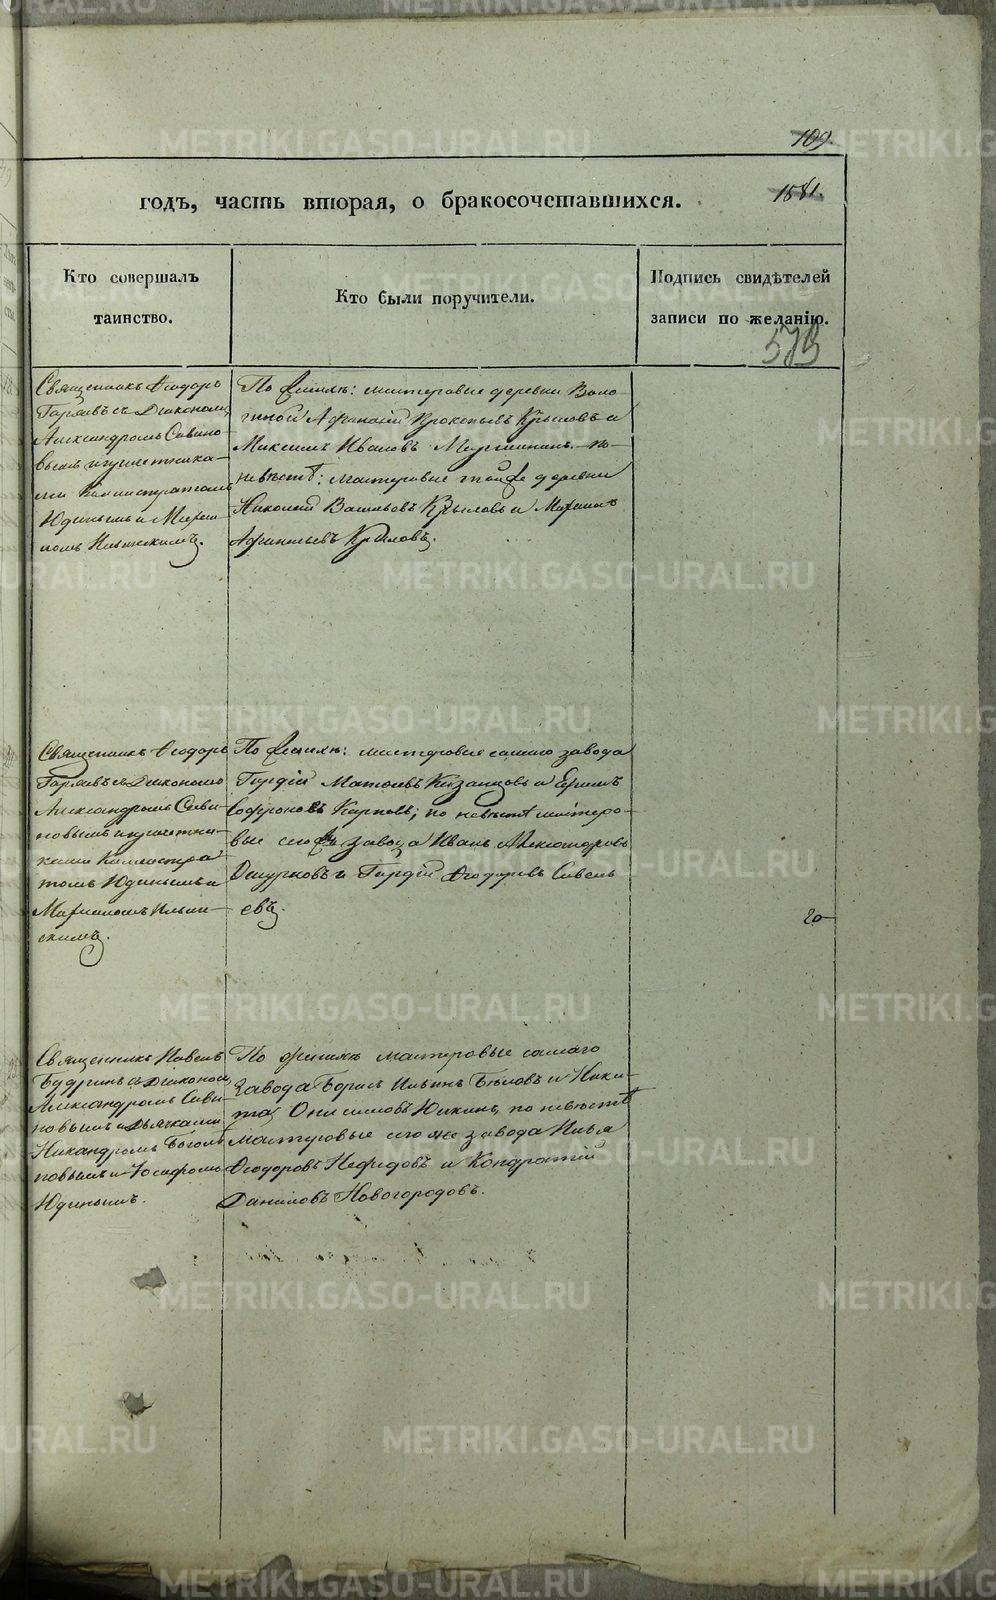 109.
годъ, часть вторая, о бракосочетавшихся.
1581.
Кто совершалъ
таинство.
Кто были поручители.
Подпись свидѣтелей
записи по желанію.
573
Священникъ Ѳеодоръ
съ Діакономъ
Александромъ Сави-
новымъ и причетника-
ми Каллистратомъ
Юдинымъ и
Ильинскимъ.
По женихѣ: мастеровые деревни
Афанасій Прокопьевъ Крыловъ и
Максимъ Ивановъ По
невѣстѣ: мастеровые той же деревни
Николай Васильевъ Крыловъ и
Афанасьевъ Крыловъ.
Священникъ Ѳеодоръ
съ Діакономъ
Александромъ Сави-
новымъ и причетни-
ками Каллистра-
томъ Юдинымъ и
Ильин-
скимъ.
По женихѣ: мастеровые самаго завода
Гордій Матвеевъ Казанцовъ и
Софроновъ Карповъ; по невѣстѣ мастеро-
вые сего же завода Иванъ Александровъ
Ошурковъ и Гордій Ѳеодоровъ Савель
евъ.
20
Священникъ Павелъ
Будринъ съ Діакономъ
Александромъ Сави-
новымъ и Дьячками
Никандромъ Богомо
повымъ и Іосифомъ
Юдинымъ.
По женихѣ мастеровые самаго
завода Борисъ Ильинъ Бѣловъ и Ники-
та Онисимовъ Юкинъ, по невѣстѣ
мастеровые сего же завода Илья
Ѳеодоровъ Нефедовъ и Кондратій
Даниловъ Новогородовъ.
METRIKI.GASO-URAL.RU